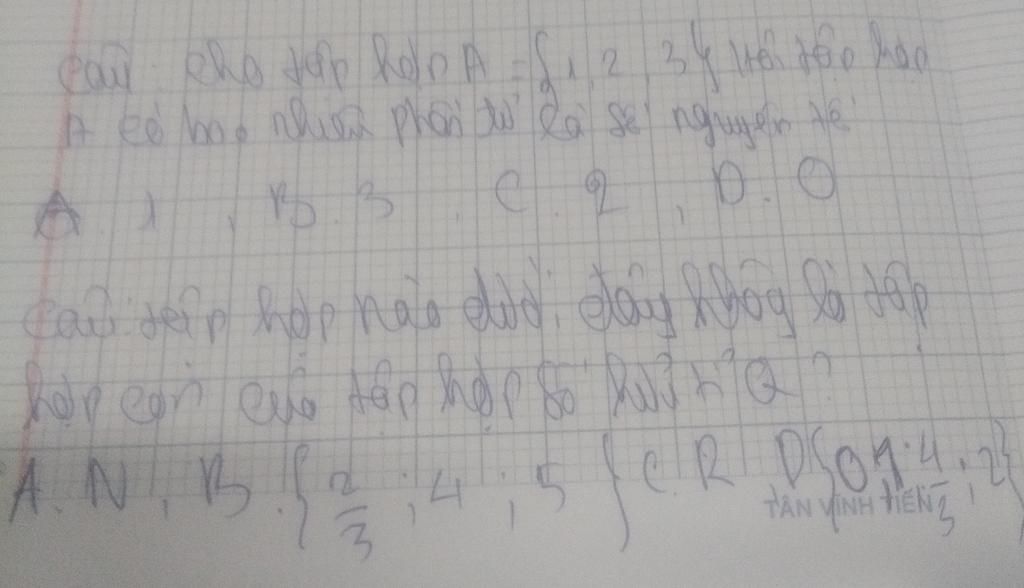 Câu: cho tập hợp A = {1, 2, 3} Hỏi tập hợp
A có bao nhiêu phần tử là số nguyên tố
A. 1, B. 3, C. 2, D. 0
Câu: tập hợp nào dưới đây không là tập
hợp con của tập hợp số hữu tỉ Q?
A. N, B. {2/3; 4; 5} C. R D {0,1; 4/3; 2}
TÂN VĨNH TIẾN